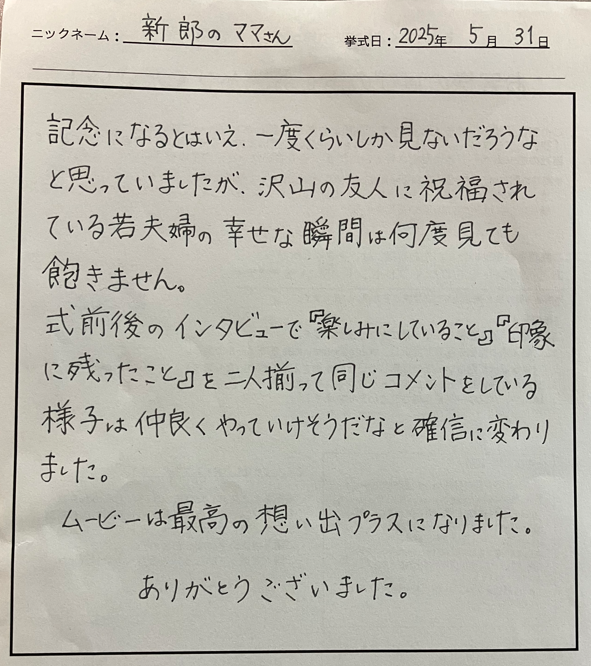 ニックネーム： 新郎のママさん 挙式日： 2025年 5月 31日
記念になるとはいえ、一度くらいしか見ないだろうな
と思っていましたが、沢山の友人に祝福され
ている若夫婦の幸せな瞬間は何度見ても
飽きません。
式前後のインタビューで『楽しみにしていること』『印象
に残ったこと』を二人揃って同じコメントをしている
様子は仲良くやっていけそうだなと確信に変わり
ました。
ムービーは最高の想い出プラスになりました。
ありがとうございました。